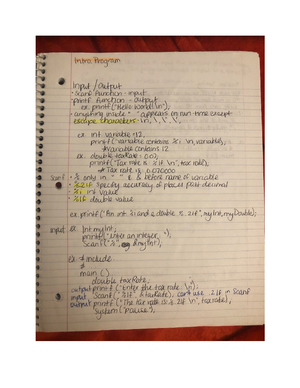 Intro Program
Input / Output
• Scanf function - input
• printf function - output
ex. printf("Hello World! \n");
• anything inside " " appears on run time except
escape characters \n, \
ex. int variable = 12;
printf("variable contains %i \n", variable);
variable contains 12
ex. double taxRate = 0.07;
printf("Tax rate is %lf \n", taxrate);
Tax rate is 0.070000
Scanf • % only in " " & & before name of variable
• %.2lf specify accuracy of places past decimal
• %i int value
• %lf double value
ex. printf("An int %i and a double %.2lf", myInt, myDouble);
input ex. Int myInt;
printf("enter an integer
Scanf("%", &myInt);
ex # include
#
main ()
double taxRate;
output printf("Enter the tax rate: \n");
input Scanf("%lf", & taxRate); can't use .2lf in Scanf
output printf("The tax rate is %.2lf \n", taxrate);
System("pause");